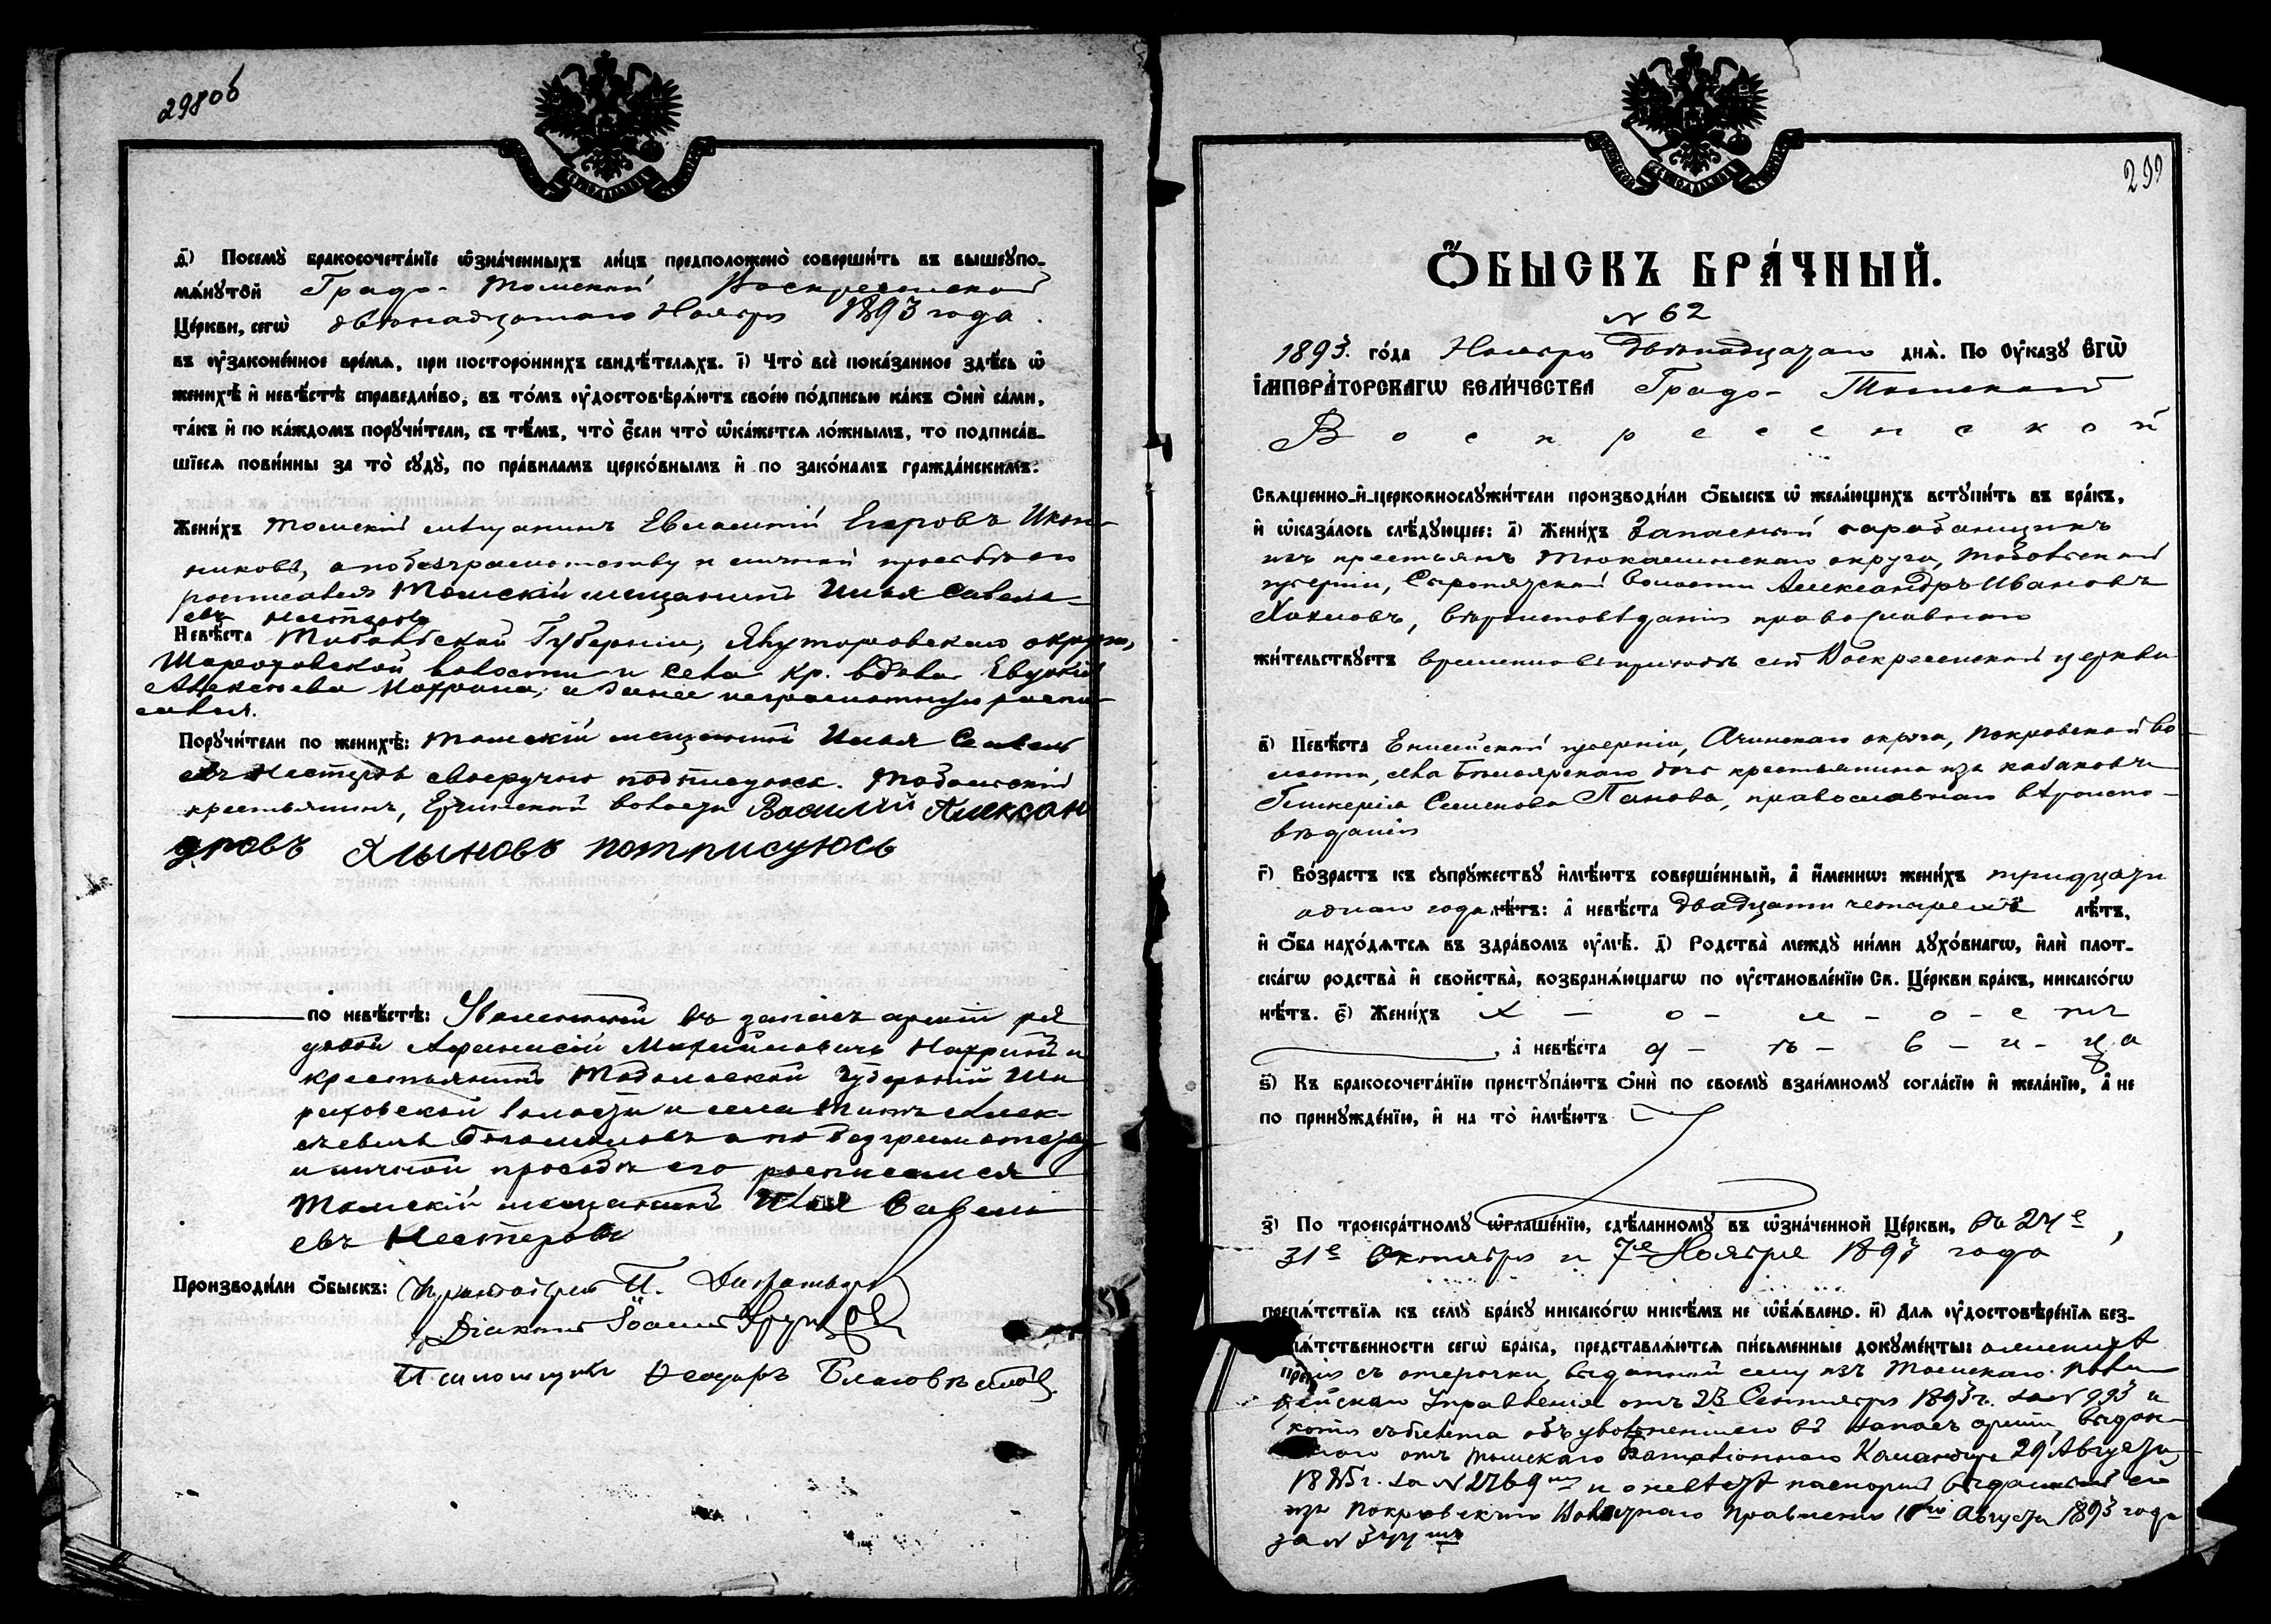 298об
д҃) Посему̀ бракосочета́нїе ѡ҆зна́ченныхъ ли́цъ предположено̀ соверши́ть въ вышеѹпо-
мѧ́нутой Градо-Томской Воскресенской
Це́ркви, сегѡ̀ двенадцатаго Ноября 1893 года.
въ ѹ҆законе́нное вре́мѧ, при посторо́ннихъ свидѣ́телѧхъ. і҃) Что̀ всѐ пока́занное здѣ́сь ѡ҆
женихѣ̀ и҆ невѣ́стѣ справедли́во, въ то́мъ ѹ҆достовѣрѧ́ютъ свое́ю по́дписью ка́къ ѻ҆нѝ са́ми,
та́къ и҆ по ка́ждомъ поручи́тели, съ тѣ́мъ, что̀ є҆́сли что̀ ѡ҆ка́жетсѧ ло́жнымъ, то подписа́в-
шїесѧ пови́нны за то̀ суду̀, по пра́виламъ церко́внымъ и҆ по зако́намъ гражда́нскимъ.
Жени́хъ Томскій мѣщанинъ Евлампій Егоровъ Икон-
никовъ, а по безграмотству и личной просьбѣ его
росписался Томскій мещанинъ Илья Савель-
евъ Нестеровъ
Невѣ́ста Тобольской Губерніи, Ялуторовскаго округа,
волости и села кр. вдова Евдокія
Алексѣева а за нея неграмотную роспи-
сался.
Поручи́тели по женихѣ̀: Томскій мещанинъ Илья Савель
евъ Нестеровъ своеручно подписуюсь. Тобольскій
крестьянинъ, волости Василий Алексан
дровъ Хлыновъ потписуюсь
по невѣ́стѣ: Уволенный въ запасъ армій ря
довой Афанасій и
крестьянинъ Тобольской Губерній
волости и села Титъ Алек-
сѣевичь а по безграмотству
и личной просьбѣ его росписался
Томскій мещанинъ Илья Савель
евъ Нестеровъ
Производи́ли ѻ҆́быскъ: П.
Діаконъ Іоаннъ
Псаломщикъ Ѳеодоръ Благовѣстовъ
299
Ѻ҆́БЫСКЪ БРА́ЧНЫЙ.
N 62
1893. го́да Ноября двѣнадцатаго днѧ̀. По ѹ҆ка́зу Є҆гѡ̀
І҆мпера́торскагѡ вели́чества Градо-Томской
Воскресенской
Свѧще́нно-и҆-церковнослужи́тели производи́ли ѻ҆́быскъ ѡ҆ жела́ющихъ вступи́ть въ бра́къ,
и҆ ѡ҆каза́лось слѣ́дующее: а҃) Жени́хъ Запасный барабанщикъ
изъ крестьянъ Тюкалинскаго округа, Тобольской
губерніи, волости Александръ Ивановъ
вѣроисповѣданія православнаго
жи́тельствуетъ временно въ приходѣ сей Воскресенской церкви
в҃) Невѣ́ста Енисейской губерніи, Ачинскаго округа, Покровской во-
лости, села Бѣлоярскаго дочь крестьянина изъ казаковъ
Гликерія Семенова Панова, православнаго вѣроиспо-
вѣданія
г҃) Во́зрастъ къ супру́жеству и҆мѣ́ютъ соверше́нный, а҆ и҆́меннѡ: жени́хъ тридцати
одного года лѣ́тъ: а҆ невѣ́ста двадцати четырехъ лѣ́тъ,
и҆ ѻ҆́ба нахо́дѧтсѧ въ здра́вомъ ѹ҆мѣ̀. д҃) Родства̀ между̀ ни́ми духо́внагѡ, и҆лѝ плот-
ска́гѡ родства̀ и҆ свойства̀, возбранѧ́ющагѡ по ѹ҆становле́нїю Св. Це́ркви бра́къ, никако́гѡ
нѣ́тъ. є҃) Жени́хъ х - о - л - о - с тъ
, а҆ невѣ́ста д - ѣ - в - и - ц а
ѕ҃) Къ бракосочета́нїю приступа́ютъ ѻ҆нѝ по своему̀ взаи́мному согла́сїю и҆ жела́нїю, а҆ не
по принужде́нїю, и҆ на то̀ и҆мѣ́ютъ
з҃) По троекра́тному ѡ҆глаше́нїю, сдѣ́ланному въ ѡ҆зна́ченной Це́ркви, въ 24е,
31е Октября и 7е Ноября 1893 года
препѧ́тствїѧ къ сему̀ бра́ку никако́гѡ никѣ́мъ не ѡ҆бъѧ́влено. и҃) Длѧ ѹ҆достовѣре́нїѧ без-
пѧ́тственности сегѡ̀ бра́ка, представлѧ́ютсѧ пи́сьменные докуме́нты: о женихѣ
съ отсрочки, выданной ему изъ Томскаго Поли-
цейскаго Управленія отъ 23 Сентября 1893 г. за N 993 и
копія съ билета объ увольненіи въ запасъ арміи, выдан-
наго отъ Томскаго Баталіоннаго Командира 29 Августа
г. за N и о невѣстѣ паспортъ выданный ей
изъ Покровскаго Волостнаго Правленія Августа 1893 года
за N